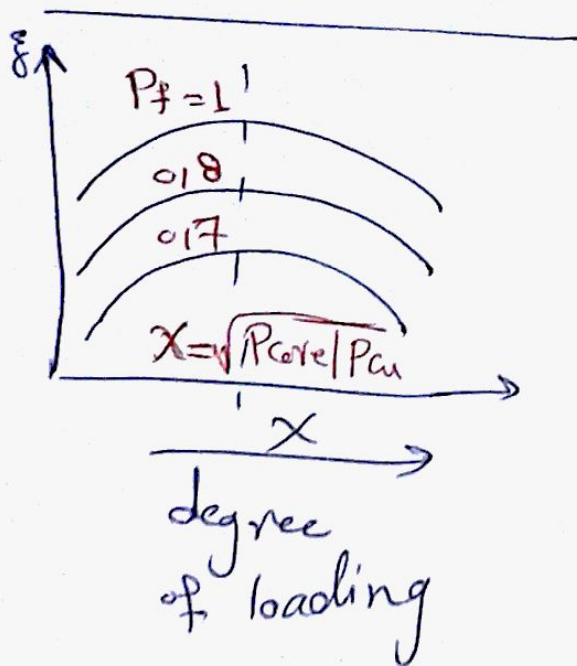 ξ
Pf = 1
0,8
0,7
X = √Pcore/Pcu
X
degree
of loading